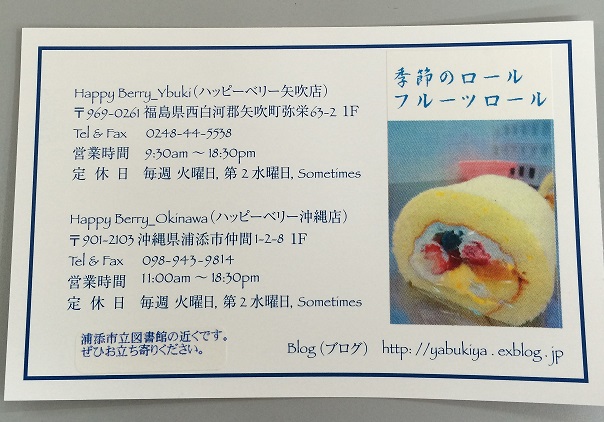 Happy Berry_Ybuki(ハッピーベリー矢吹店)
〒969-0261 福島県西白河郡矢吹町弥栄63-2 1F
Tel & Fax 0248-44-5538
営業時間 9:30am～18:30pm
定 休 日 毎週 火曜日, 第2水曜日, Sometimes
Happy Berry_Okinawa(ハッピーベリー沖縄店)
〒901-2103 沖縄県浦添市仲間1-2-8 1F
Tel & Fax 098-943-9814
営業時間 11:00am～18:30pm
定 休 日 毎週 火曜日, 第2水曜日, Sometimes
浦添市立図書館の近くです。
ぜひお立ち寄りください。
Blog(ブログ) http://yabukiya.exblog.jp
季節のロール
フルーツロール